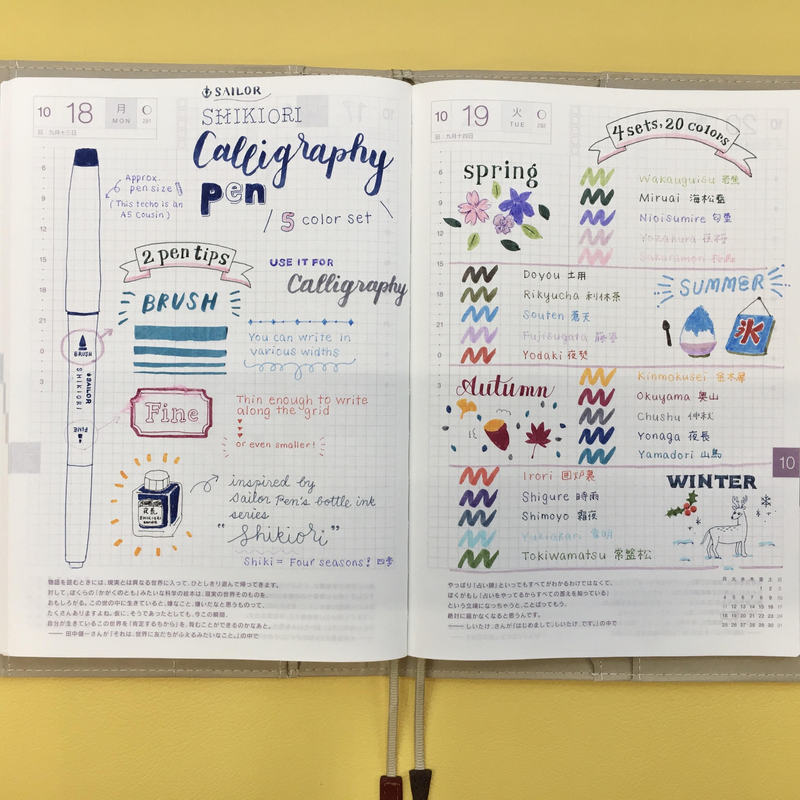 10 18 月 MON 291
旧:九月十三日
SAILOR
SHIKIORI
Calligraphy
pen
5 color set
Approx.
pen size
(This techo is an
A5 cousin)
2 pen tips
USE IT FOR
Calligraphy
BRUSH
You can write in
various widths
BRUSH
SAILOR
SHIKIORI
FINE
Fine
Thin enough to write
along the grid
or even smaller!
inspired by
Sailor Pen's bottle ink
series
"Shikiori"
Shiki = Four seasons! 四季
6
9
12
15
18
21
0
3
物語を読むときには、現実とは異なる世界に入って、ひとしきり遊んで帰ってきます。
対して、ぼくらの「かがくのとも」みたいな科学の絵本は、現実の世界そのものを、
おもしろがる。この世の中に生きていると、嫌なこと、嫌いだなと思うものって、
たくさんありますよね。仮に、そうであったとしても、今この瞬間、
自分が生きているこの世界を「肯定するちから」を、育むことができるのかなあと。
―― 田中健一さんが『それは、世界に友だちがふえるみたいなこと。』の中で
10 19 火 TUE 292
旧:九月十四日
4 sets, 20 colors
spring
Wakauguisu 若鶯
Miruai 海松藍
Nioisumire 匂菫
Yozakura 夜桜
Sakuramori 桜森
SUMMER
氷
Doyou 土用
Rikyucha 利休茶
Souten 蒼天
Fujisugata 藤姿
Yodaki 夜焚
Autumn
Kinmokusei 金木犀
Okuyama 奥山
Chushu 仲秋
Yonaga 夜長
Yamadori 山鳥
WINTER
Irori 囲炉裏
Shigure 時雨
Shimoyo 霜夜
Yukiakari 雪明
Tokiwamatsu 常盤松
6
9
12
15
18
21
0
3
10
やっぱり「占い師」といってもすべてがわかるわけではなくて、
ぼくがもし「占いをやってるからすべての答えを知っている」
という立場になっちゃうと、ことばってもう、
絶対に届かなくなると思うんです。
―― しいたけ.さんが『はじめまして、しいたけ.です。』の中で
月 火 水 木 金 土 日
1 2 3
4 5 6 7 8 9 10
11 12 13 14 15 16 17
18 19 20 21 22 23 24
25 26 27 28 29 30 31